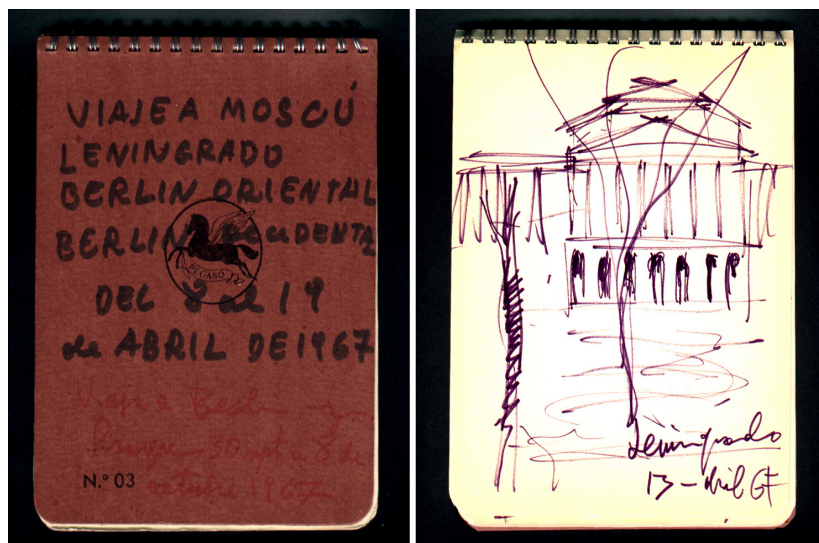 VIAJE A MOSCÚ
LENINGRADO
BERLIN ORIENTAL
BERLIN OccIDENTAL
PEGASO
DEL 8 al 19
de ABRIL DE 1967
Viaje a Berlin y
Praga
8 de
octubre 1967
N.º 03
Leningrado
13 - abril 67